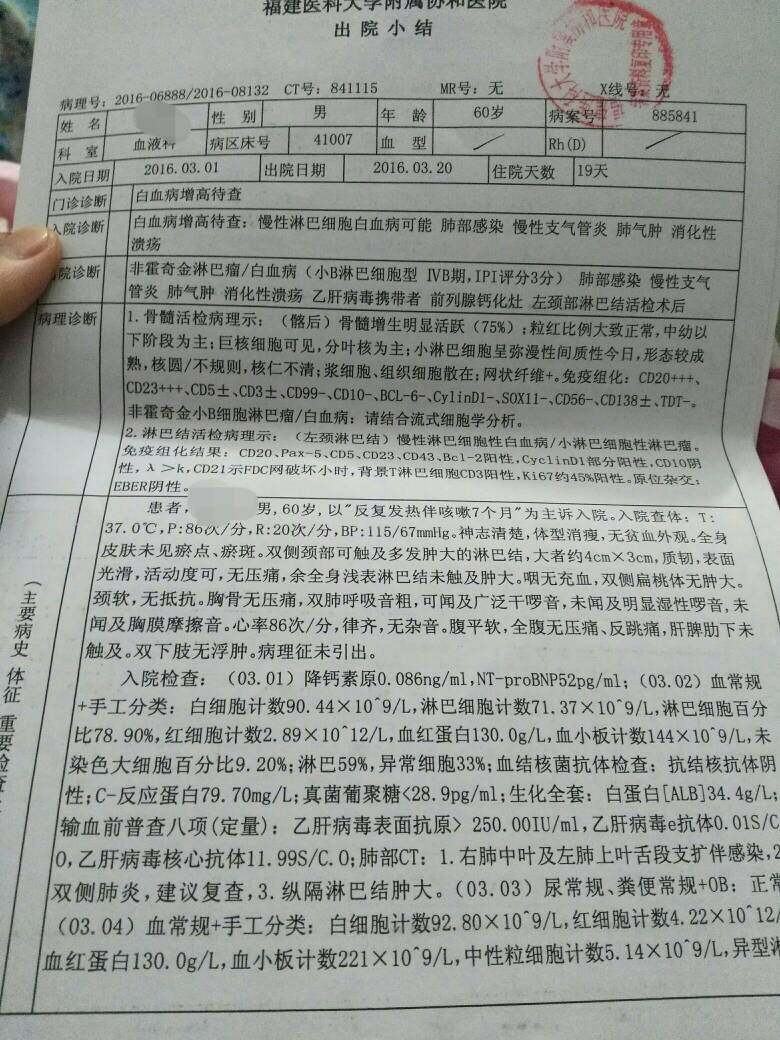 福建医科大学附属协和医院
出院小结
病理号：2016-06888/2016-08132 CT号：841115 MR号：无 X线号：无
姓名 性别 男 年龄 60岁 病案号 885841
科室 血液科 病区床号 41007 血型 Rh(D)
入院日期 2016.03.01 出院日期 2016.03.20 住院天数 19天
门诊诊断 白血病增高待查
入院诊断 白血病增高待查：慢性淋巴细胞白血病可能 肺部感染 慢性支气管炎 肺气肿 消化性
溃疡
院诊断 非霍奇金淋巴瘤/白血病（小B淋巴细胞型 ⅣB期,IPI评分3分） 肺部感染 慢性支气
管炎 肺气肿 消化性溃疡 乙肝病毒携带者 前列腺钙化灶 左颈部淋巴结活检术后
病理诊断 1.骨髓活检病理示：（髂后）骨髓增生明显活跃（75%）;粒红比例大致正常,中幼以
下阶段为主；巨核细胞可见,分叶核为主；小淋巴细胞呈弥漫性间质性今日,形态较成
熟,核圆/不规则,核仁不清；浆细胞、组织细胞散在；网状纤维+。免疫组化：CD20+++、
CD23+++、CD5±、CD3±、CD99-、CD10-、BCL-6-、CylinD1-、SOX11-、CD56-、CD138±、TDT-。
非霍奇金小B细胞淋巴瘤/白血病：请结合流式细胞学分析。
2.淋巴结活检病理示：（左颈淋巴结）慢性淋巴细胞性白血病/小淋巴细胞性淋巴瘤。
免疫组化结果：CD20、Pax-5、CD5、CD23、CD43、Bcl-2阳性,CyclinD1部分阳性,CD10阴
性,λ＞k,CD21示FDC网破坏小时,背景T淋巴细胞CD3阳性,Ki67约45%阳性。原位杂交：
EBER阴性。
（主要病史 体征 重要检查
患者, 男,60岁,以"反复发热伴咳嗽7个月"为主诉入院。入院查体：T:
37.0℃,P:86次/分,R:20次/分,BP:115/67mmHg。神志清楚,体型消瘦,无贫血外观。全身
皮肤未见瘀点、瘀斑。双侧颈部可触及多发肿大的淋巴结,大者约4cm×3cm,质韧,表面
光滑,活动度可,无压痛,余全身浅表淋巴结未触及肿大。咽无充血,双侧扁桃体无肿大。
颈软,无抵抗。胸骨无压痛,双肺呼吸音粗,可闻及广泛干啰音,未闻及明显湿性啰音,未
闻及胸膜摩擦音。心率86次/分,律齐,无杂音。腹平软,全腹无压痛、反跳痛,肝脾肋下未
触及。双下肢无浮肿。病理征未引出。
入院检查：（03.01）降钙素原0.086ng/ml,NT-proBNP52pg/ml；（03.02）血常规
+手工分类：白细胞计数90.44×10^9/L,淋巴细胞计数71.37×10^9/L,淋巴细胞百分
比78.90%,红细胞计数2.89×10^12/L,血红蛋白130.0g/L,血小板计数144×10^9/L,未
染色大细胞百分比9.20%;淋巴59%,异常细胞33%;血结核菌抗体检查：抗结核抗体阴
性;C-反应蛋白79.70mg/L;真菌葡聚糖<28.9pg/ml;生化全套：白蛋白[ALB]34.4g/L;
输血前普查八项(定量)：乙肝病毒表面抗原> 250.00IU/ml,乙肝病毒e抗体0.01S/C
O,乙肝病毒核心抗体11.99S/C.O;肺部CT：1.右肺中叶及左肺上叶舌段支扩伴感染,2
双侧肺炎,建议复查,3.纵隔淋巴结肿大。（03.03）尿常规、粪便常规+OB：正常
（03.04）血常规+手工分类：白细胞计数92.80×10^9/L,红细胞计数4.22×10^12/
血红蛋白130.0g/L,血小板计数221×10^9/L,中性粒细胞计数5.14×10^9/L,异型淋